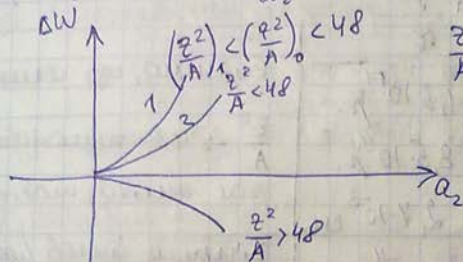 ΔW
(z²/A)₁ < (z²/A)₀ < 48
1
2
z²/A < 48
a₂
z²/A > 48